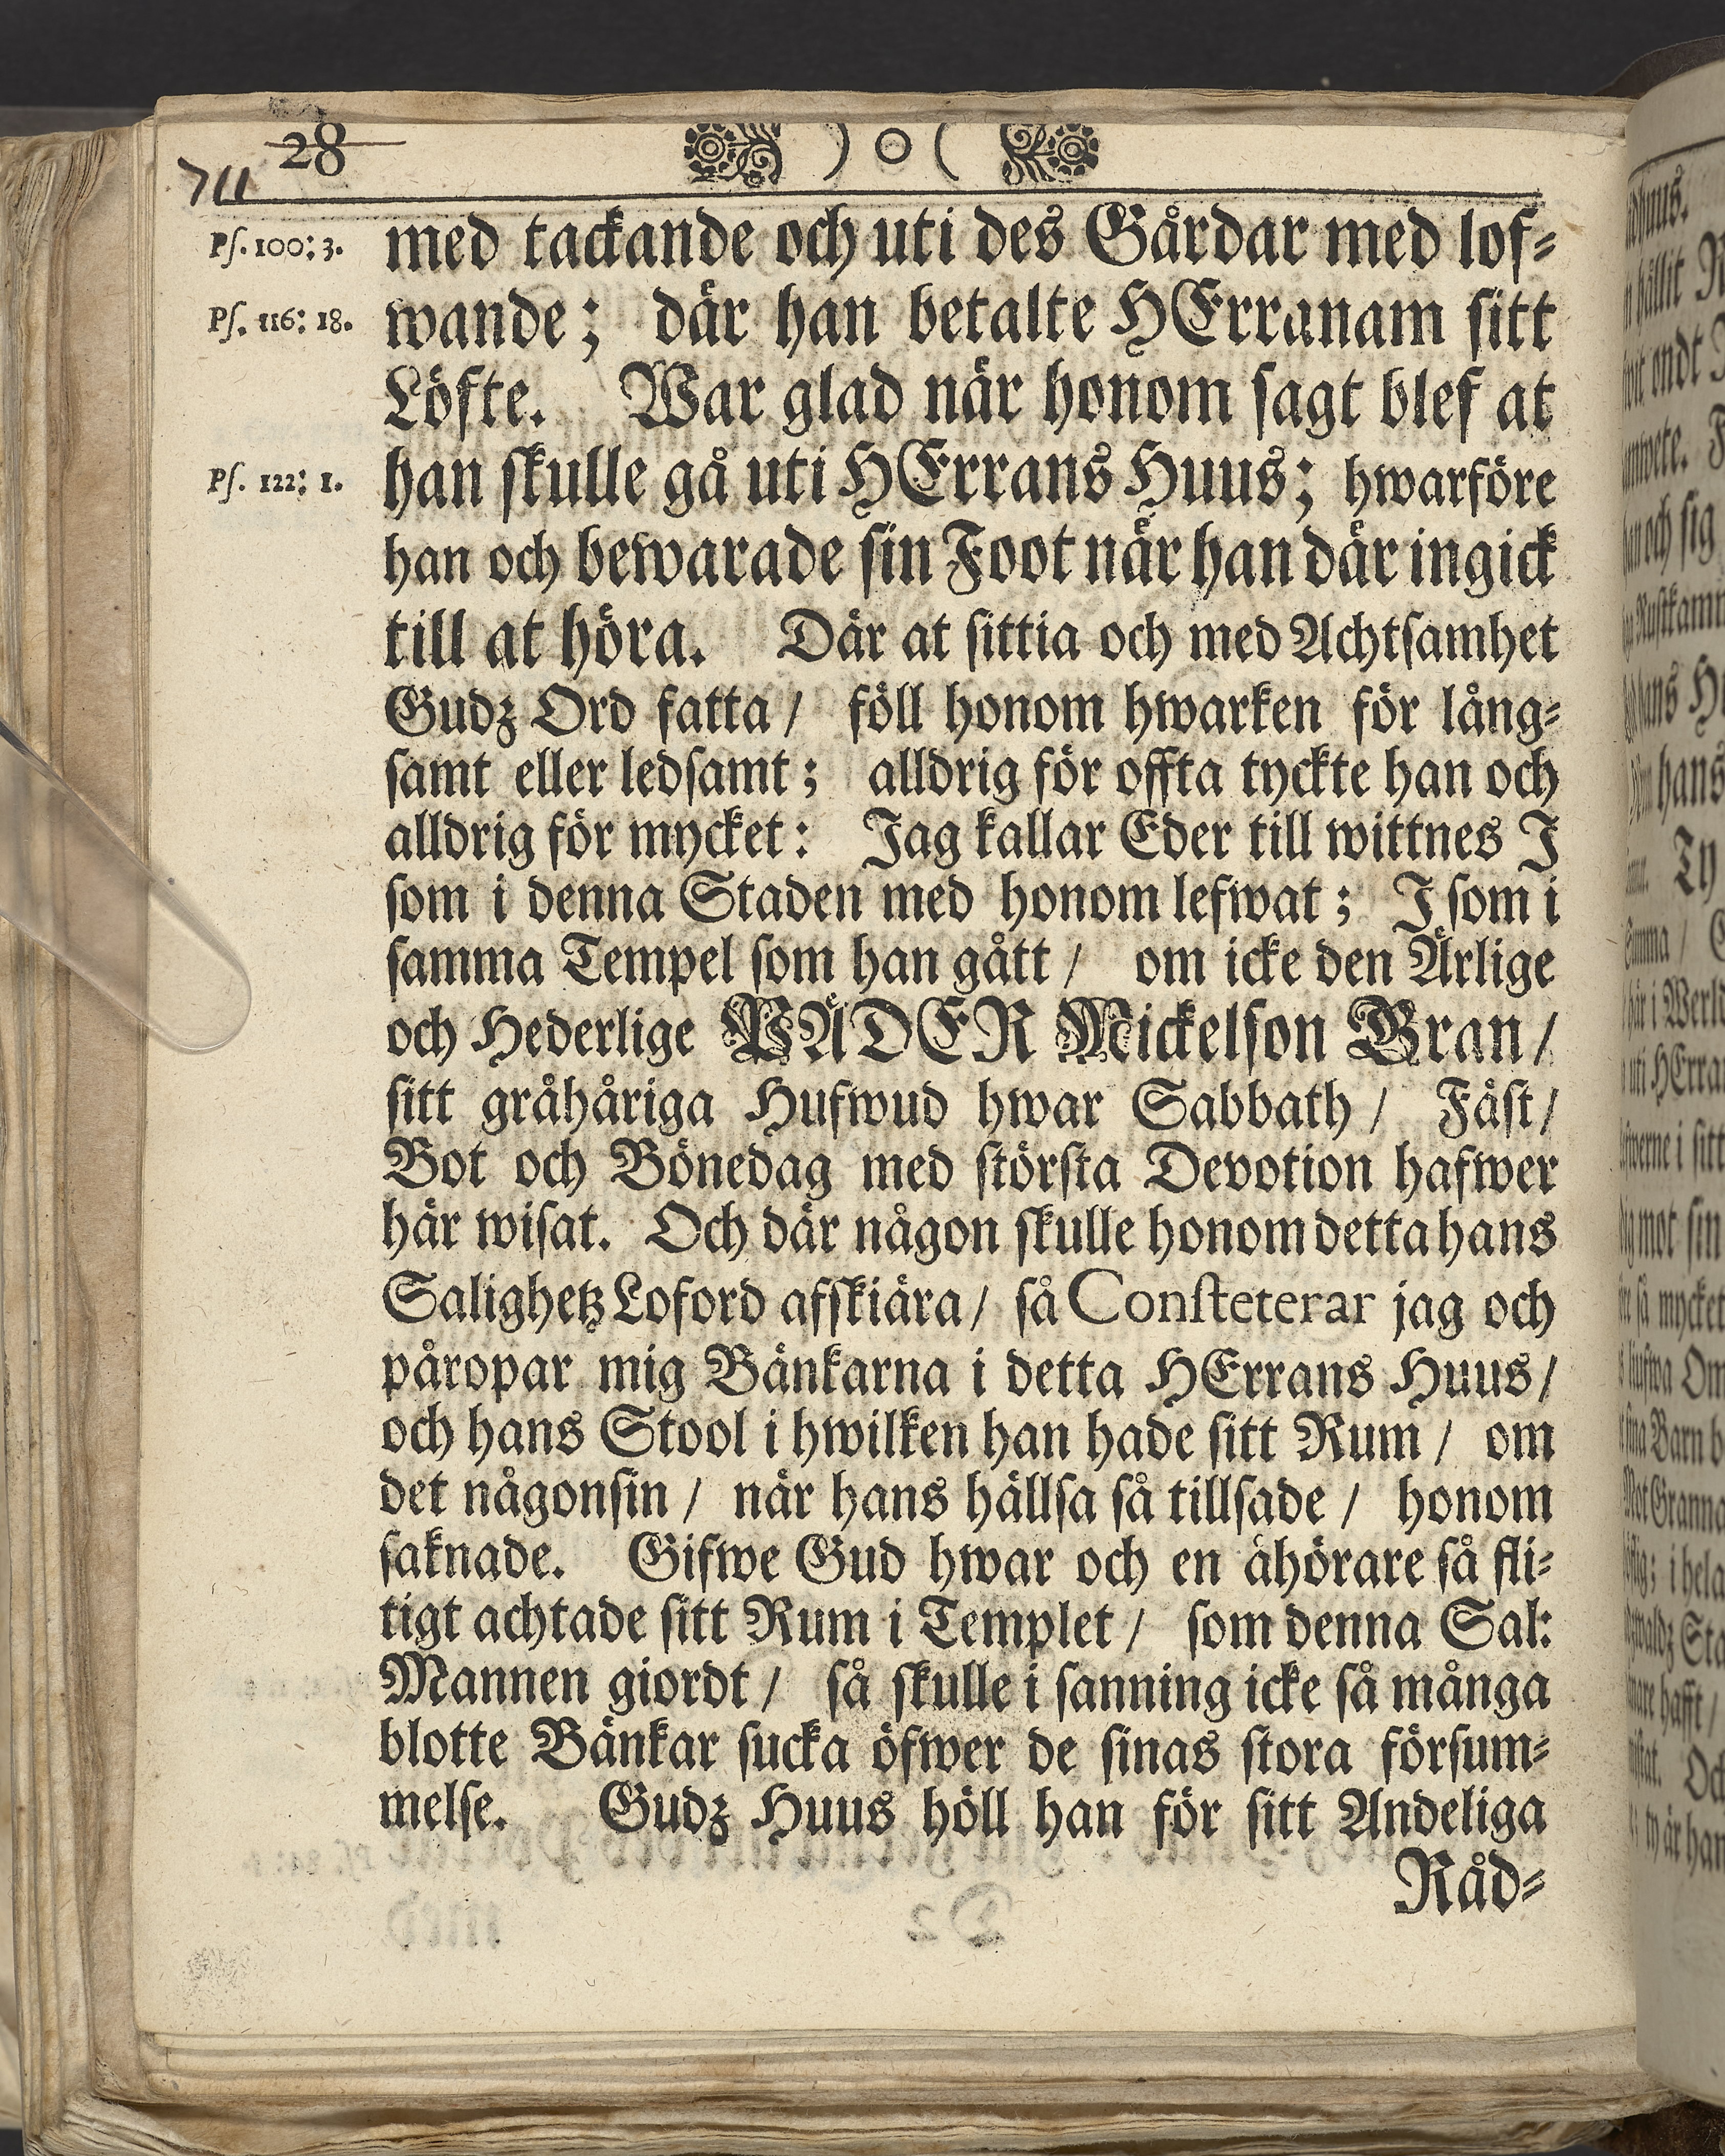 28
711
) o (
Ps. 100: 3. med tackande och uti des Gårdar med lof⸗
Ps. 116: 18. wande; där han betalte HErranam sitt
Löfte. War glad när honom sagt blef at
Ps. 122: 1. han skulle gå uti HErrans Huus; hwarföre
han och bewarade sin Foot när han där ingick
till at höra. Där at sittia och med Achtsamhet
Gudz Ord fatta / föll honom hwarken för lång⸗
samt eller ledsamt; alldrig för offta tyckte han och
alldrig för mycket: Jag kallar Eder till wittnes J
som i denna Staden med honom lefwat; J som i
samma Tempel som han gått / om icke den Ärlige
och Hederlige PÄDER Mickelson Gran /
sitt gråhåriga Hufwud hwar Sabbath / Fäst /
Bot och Bönedag med största Devotion hafwer
här wisat. Och där någon skulle honom detta hans
Salighetz Loford afskiära / så Consteterar jag och
påropar mig Bänkarna i detta HErrans Huus /
och hans Stool i hwilken han hade sitt Rum / om
det någonsin / när hans hällsa så tillsade / honom
saknade. Gifwe Gud hwar och en åhörare så fli⸗
tigt achtade sitt Rum i Templet / som denna Sal:
Mannen giordt / så skulle i sanning icke så många
blotte Bänkar sucka öfwer de sinas stora försum⸗
melse. Gudz Huus höll han för sitt Andeliga
Råd⸗